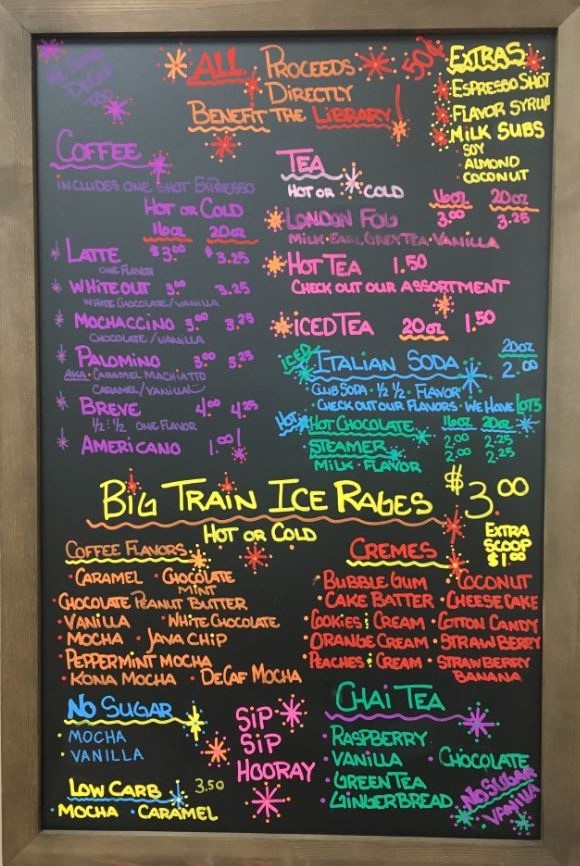 We Have
DeCaf
Too
ALL Proceeds
Directly
Benefit the Library!
50¢
Extras
Espresso Shot
Flavor Syrup
Milk Subs
Soy
Almond
Coconut
Coffee
includes one shot Expresso
Hot or Cold
16oz 20oz
Latte $3.00 $3.25
one flavor
White out 3.00 3.25
White Chocolate/vanilla
Mochaccino 3.00 3.25
Chocolate/vanilla
Palomino 3.00 3.25
AKA·Caramel Machiatto
Caramel/Vanilla
Breve 4.00 4.25
1/2 : 1/2 one Flavor
Americano 1.00!
Tea
Hot or Cold
16oz 20oz
London Fog 3.00 3.25
Milk·Earl Grey Tea·Vanilla
Hot Tea 1.50
Check out our Assortment
Iced Tea 20oz 1.50
20oz
Iced Italian Soda 2.00
Club Soda · 1/2 1/2 · Flavor
Check out our Flavors · We Have Lots
Hot Hot Chocolate 16oz 20oz
2.00 2.25
Steamer 2.00 2.25
Milk · Flavor
Big Train Ice Rages $3.00
Hot or Cold
Extra
Scoop
$1.00
Coffee Flavors
· Caramel · Chocolate
Mint
· Chocolate Peanut Butter
· Vanilla · White Chocolate
· Mocha · Java Chip
· Peppermint Mocha
· Kona Mocha · DeCaf Mocha
Cremes
· Bubble Gum · Coconut
· Cake Batter · Cheese Cake
· Cookies & Cream · Cotton Candy
· Orange Cream · Strawberry
· Peaches & Cream · Strawberry
Banana
No Sugar
· Mocha
· Vanilla
Low Carb 3.50
· Mocha · Caramel
Sip
Sip
Hooray
Chai Tea
· Raspberry
· Vanilla · Chocolate
· Green Tea
· Gingerbread
No Sugar
Vanilla